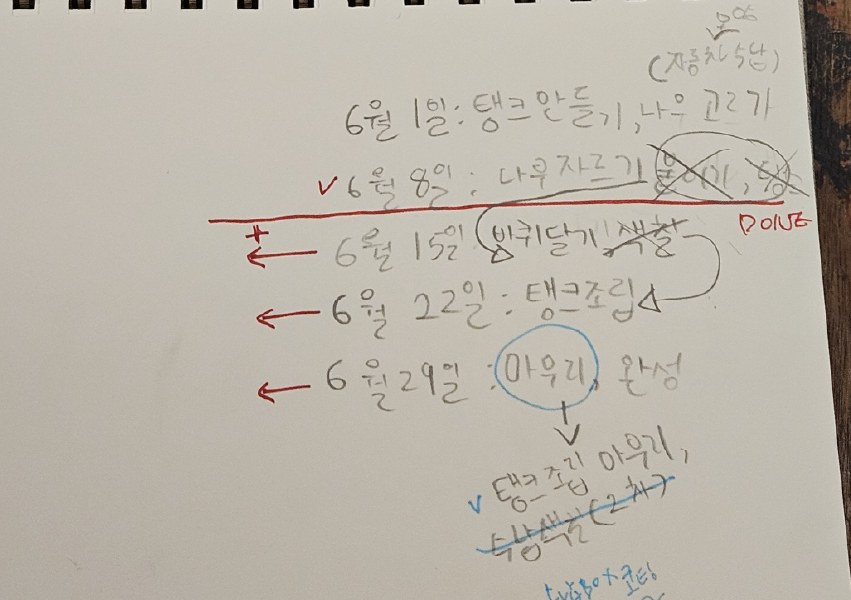 (자동차 5남)
6월 1일: 탱크 만들기, 나무 고르기
✓ 6월 8일: 나무 자르기
DONE
+
← 6월 15일 바퀴달기, 색칠
← 6월 22일: 탱크조립
← 6월 29일: 마무리, 완성
✓ 탱크 조립 마무리,
색칠(2차)
코팅